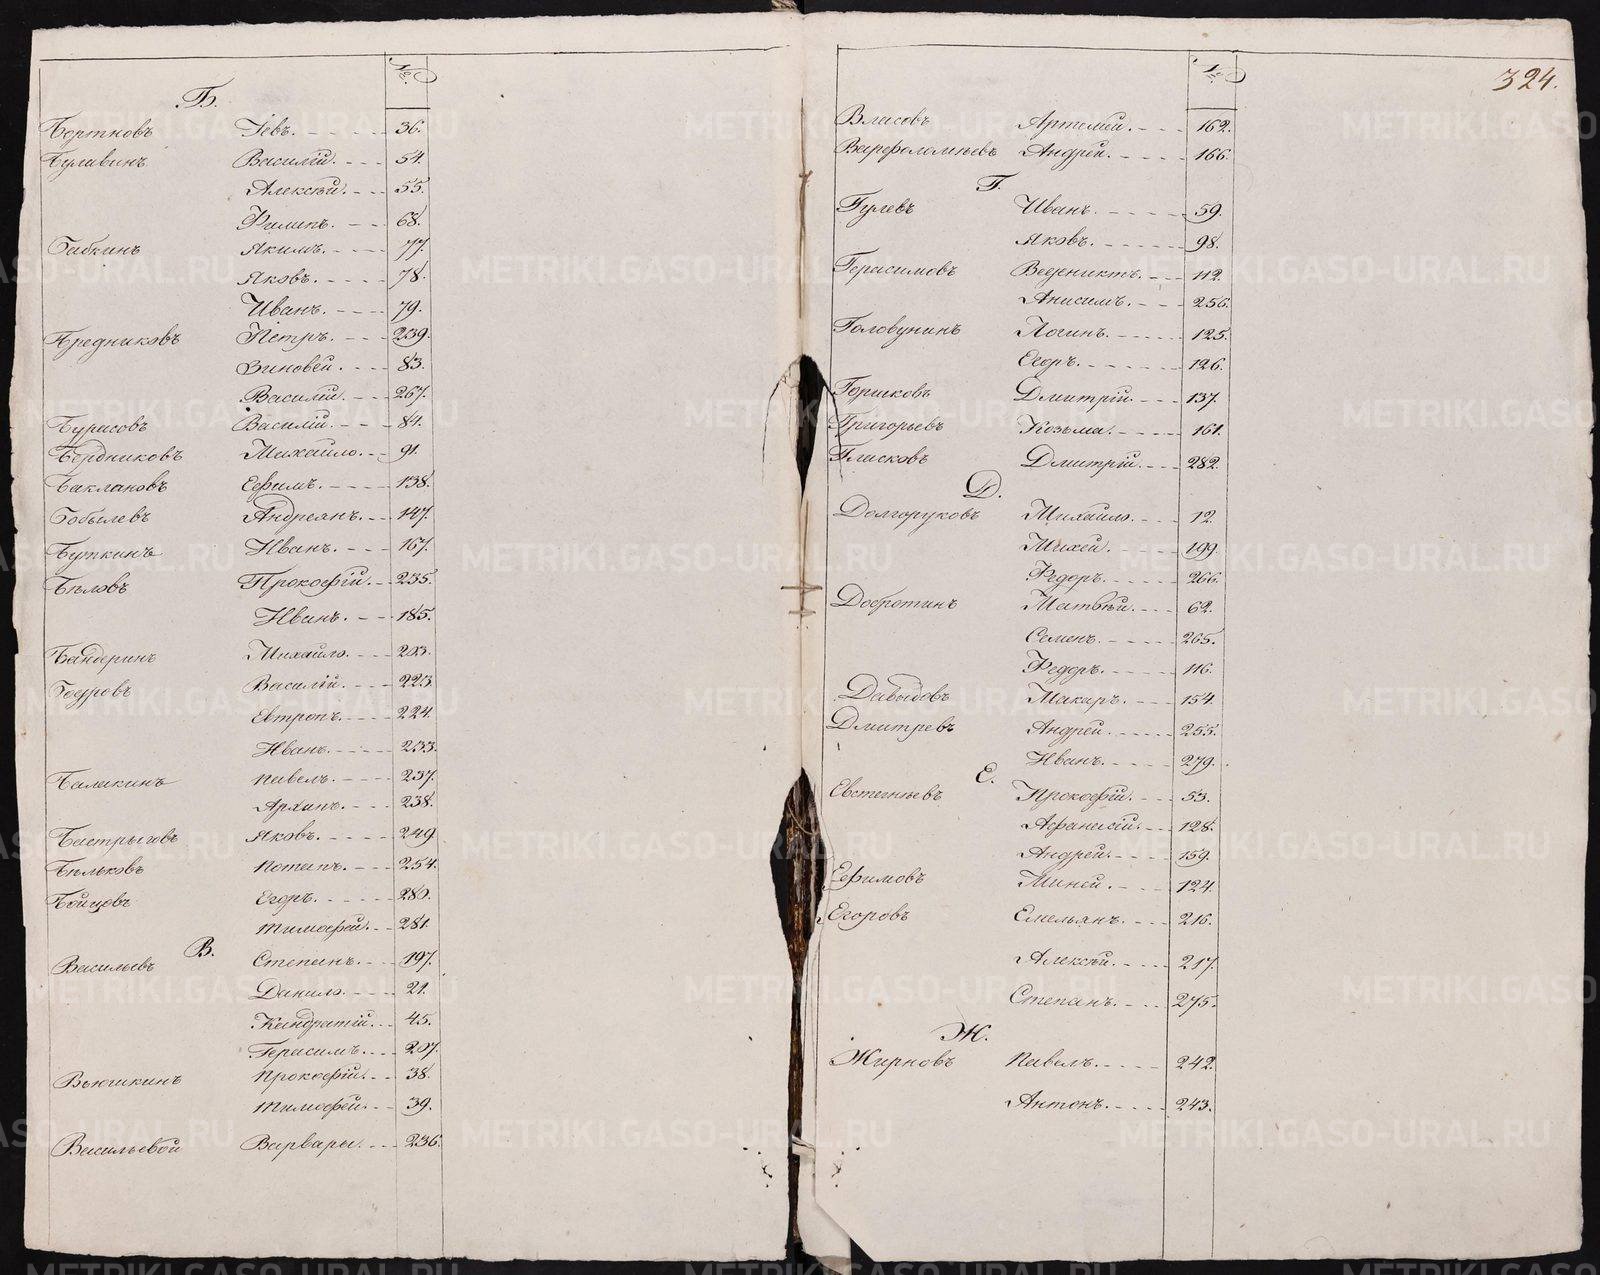 №.
Б.
Бортновъ Іевъ. 36.
Булавинъ Василій. 54.
Алексѣй. 55.
Филипъ. 68.
Бабкинъ Якимъ. 77.
Яковъ. 78.
Иванъ. 79.
Бредниковъ Петръ. 239.
Зиновей. 83.
Василій. 267.
Бурасовъ Василій. 84.
Бердниковъ Михайло. 91.
Баклановъ Ефимъ. 138.
Бобылевъ Андреянъ. 147.
Буткинъ Иванъ. 167.
Бѣловъ Прокофій. 235.
Иванъ. 185.
Бандеринъ Михайло. 203.
Бодровъ Василій. 223.
Евтропъ. 224.
Иванъ. 233.
Балакинъ Павелъ. 237.
Архипъ. 238.
Бастрыговъ Яковъ. 249
Бѣльковъ Потапъ. 254.
Бойцовъ Егоръ. 280.
Тимофей. 281.
В.
Васильевъ Степанъ. 197.
Данило. 21.
Кандратій. 45.
Герасимъ. 207.
Вьюшкинъ Прокофій. 38.
Тимофей. 39.
Васильевой Варвары. 236.
№.
324.
Власовъ Артемей. 162.
Варфоломѣевъ Андрей. 166.
Г.
Гулевъ Иванъ. 59.
Яковъ. 98.
Герасимовъ Ведениктъ. 112.
Анисимъ. 256.
Головунинъ Логинъ. 125.
Егоръ. 126.
Горшковъ Дмитрій. 137.
Григорьевъ Козьма. 161.
Гласковъ Дмитрій. 282.
Д.
Долгоруковъ Михайло. 12.
Михей. 199.
Федоръ. 266.
Добротинъ Матвѣй. 62.
Семенъ. 265.
Федоръ. 116.
Давыдовъ Макаръ. 154.
Дмитревъ Андрей. 255.
Иванъ. 279.
Е.
Евстегнѣевъ Прокофій. 53.
Афанасій. 128.
Андрей. 159.
Ефимовъ Миней. 124.
Егоровъ Емельянъ. 216.
Алексѣй. 217.
Степанъ. 275.
Ж.
Жирновъ Павелъ. 242.
Антонъ. 243.
METRIKI.GASO-URAL.RU